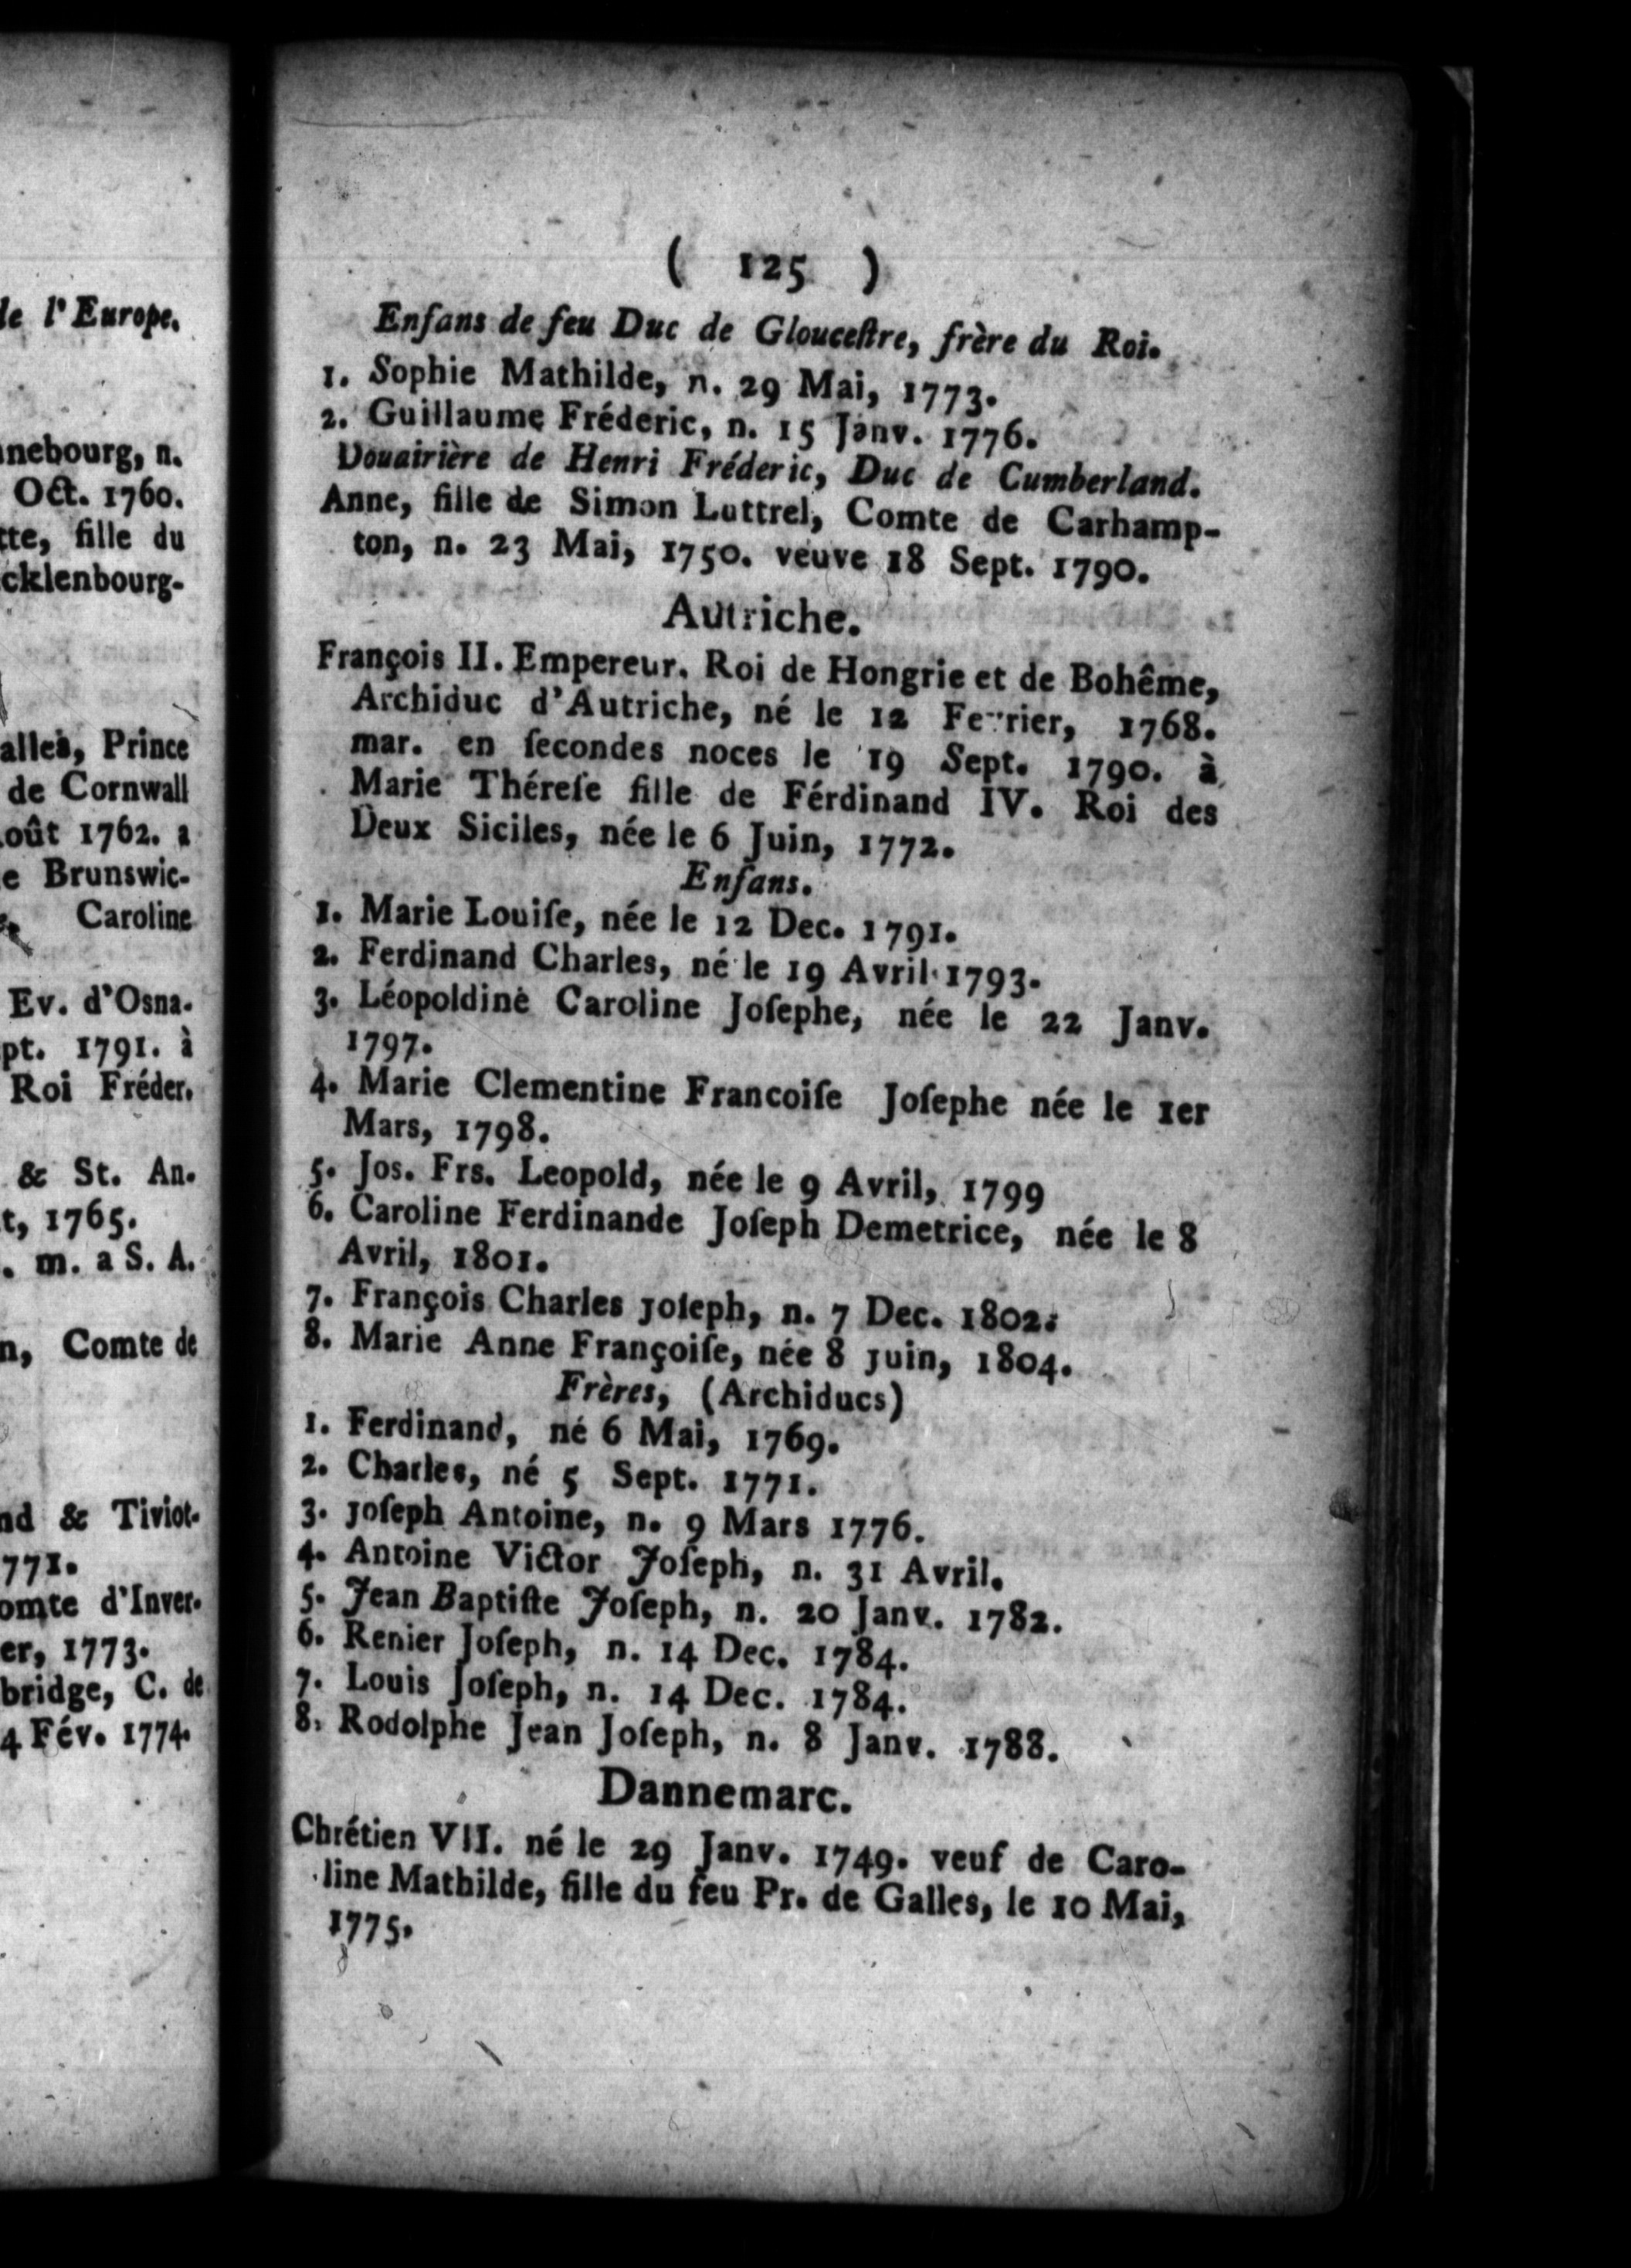 le l'Europe.
nnebourg, n.
Oct. 1760.
tte, fille du
cklenbourg-
alles, Prince
de Cornwall
oût 1762. a
e Brunswic-
Caroline
Ev. d'Osna-
pt. 1791. à
Roi Fréder.
& St. An.
t, 1765.
. m. a S. A.
n, Comte de
nd & Tiviot-
771.
omte d'Inver.
er, 1773.
bridge, C. de
4 Fév. 1774.
( 125 )
Enfans de feu Duc de Glouceſtre, frère du Roi.
1. Sophie Mathilde, n. 29 Mai, 1773.
2. Guillaume Fréderic, n. 15 Janv. 1776.
Douairière de Henri Fréderic, Duc de Cumberland.
Anne, fille de Simon Luttrel, Comte de Carhamp-
ton, n. 23 Mai, 1750. veuve 18 Sept. 1790.
Autriche.
François II. Empereur. Roi de Hongrie et de Bohême,
Archiduc d'Autriche, né le 12 Fevrier, 1768.
mar. en ſecondes noces le 19 Sept. 1790. à
Marie Théreſe fille de Férdinand IV. Roi des
Deux Siciles, née le 6 Juin, 1772.
Enfans.
1. Marie Louiſe, née le 12 Dec. 1791.
2. Ferdinand Charles, né le 19 Avril 1793.
3. Léopoldine Caroline Joſephe, née le 22 Janv.
1797.
4. Marie Clementine Francoiſe Joſephe née le 1er
Mars, 1798.
5. Jos. Frs. Leopold, née le 9 Avril, 1799
6. Caroline Ferdinande Joſeph Demetrice, née le 8
Avril, 1801.
7. François Charles Joſeph, n. 7 Dec. 1802.
8. Marie Anne Françoiſe, née 8 juin, 1804.
Frères, (Archiducs)
1. Ferdinand, né 6 Mai, 1769.
2. Charles, né 5 Sept. 1771.
3. Joſeph Antoine, n. 9 Mars 1776.
4. Antoine Victor Joſeph, n. 31 Avril.
5. Jean Baptiſte Joſeph, n. 20 Janv. 1782.
6. Renier Joſeph, n. 14 Dec. 1784.
7. Louis Joſeph, n. 14 Dec. 1784.
8. Rodolphe Jean Joſeph, n. 8 Janv. 1788.
Dannemarc.
Chrétien VII. né le 29 Janv. 1749. veuf de Caro-
line Mathilde, fille du feu Pr. de Galles, le 10 Mai,
1775.